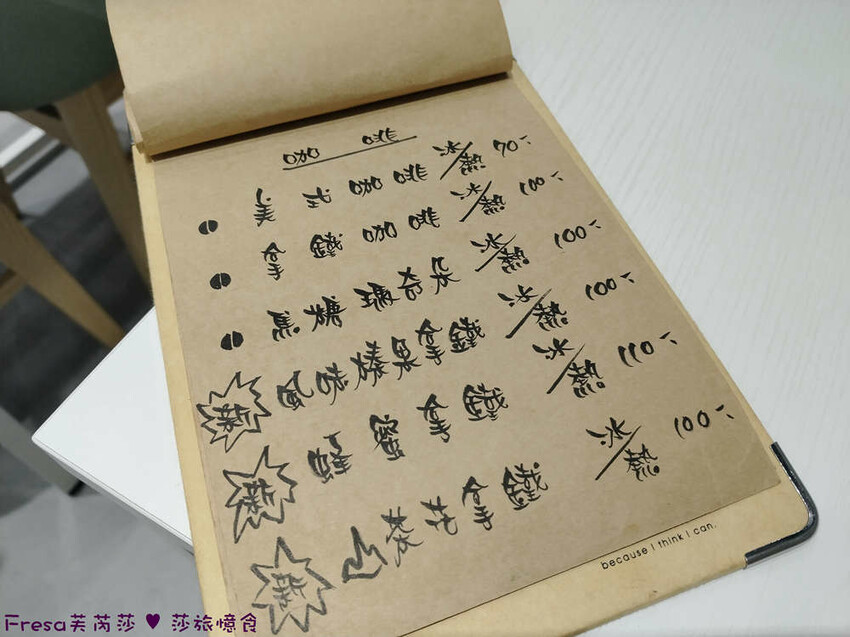 咖啡
美式咖啡 冰/熱 70
拿鐵咖啡 冰/熱 100
焦糖瑪奇朵 冰/熱 100
榛果拿鐵 冰/熱 100
蜂蜜拿鐵 冰/熱 110
拿鐵 冰/熱 100
because I think I can.
Fresa芙芮莎 ♥ 莎旅憶食